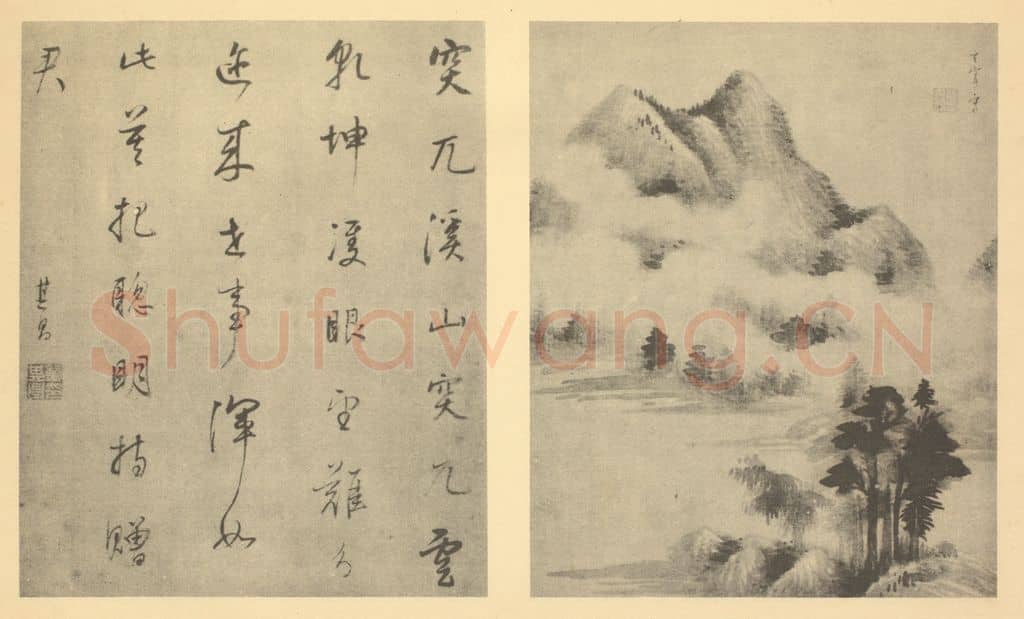 突兀溪山突兀雲
乾坤眼望難分
近來世事渾如
此莫把聰明持贈
君
其昌
玄宰畫
Shufawang.CN